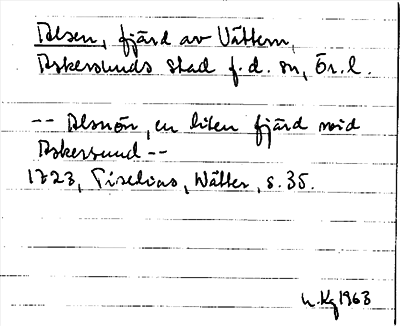 Alsen, fjärd av Vättern,
Askersunds stad f.d. sn, Ör.l.
-- Alsnön, en liten fjärd wid
Askersund --
1723, Tiselius, Wätter, s. 35.
h. Kg 1963